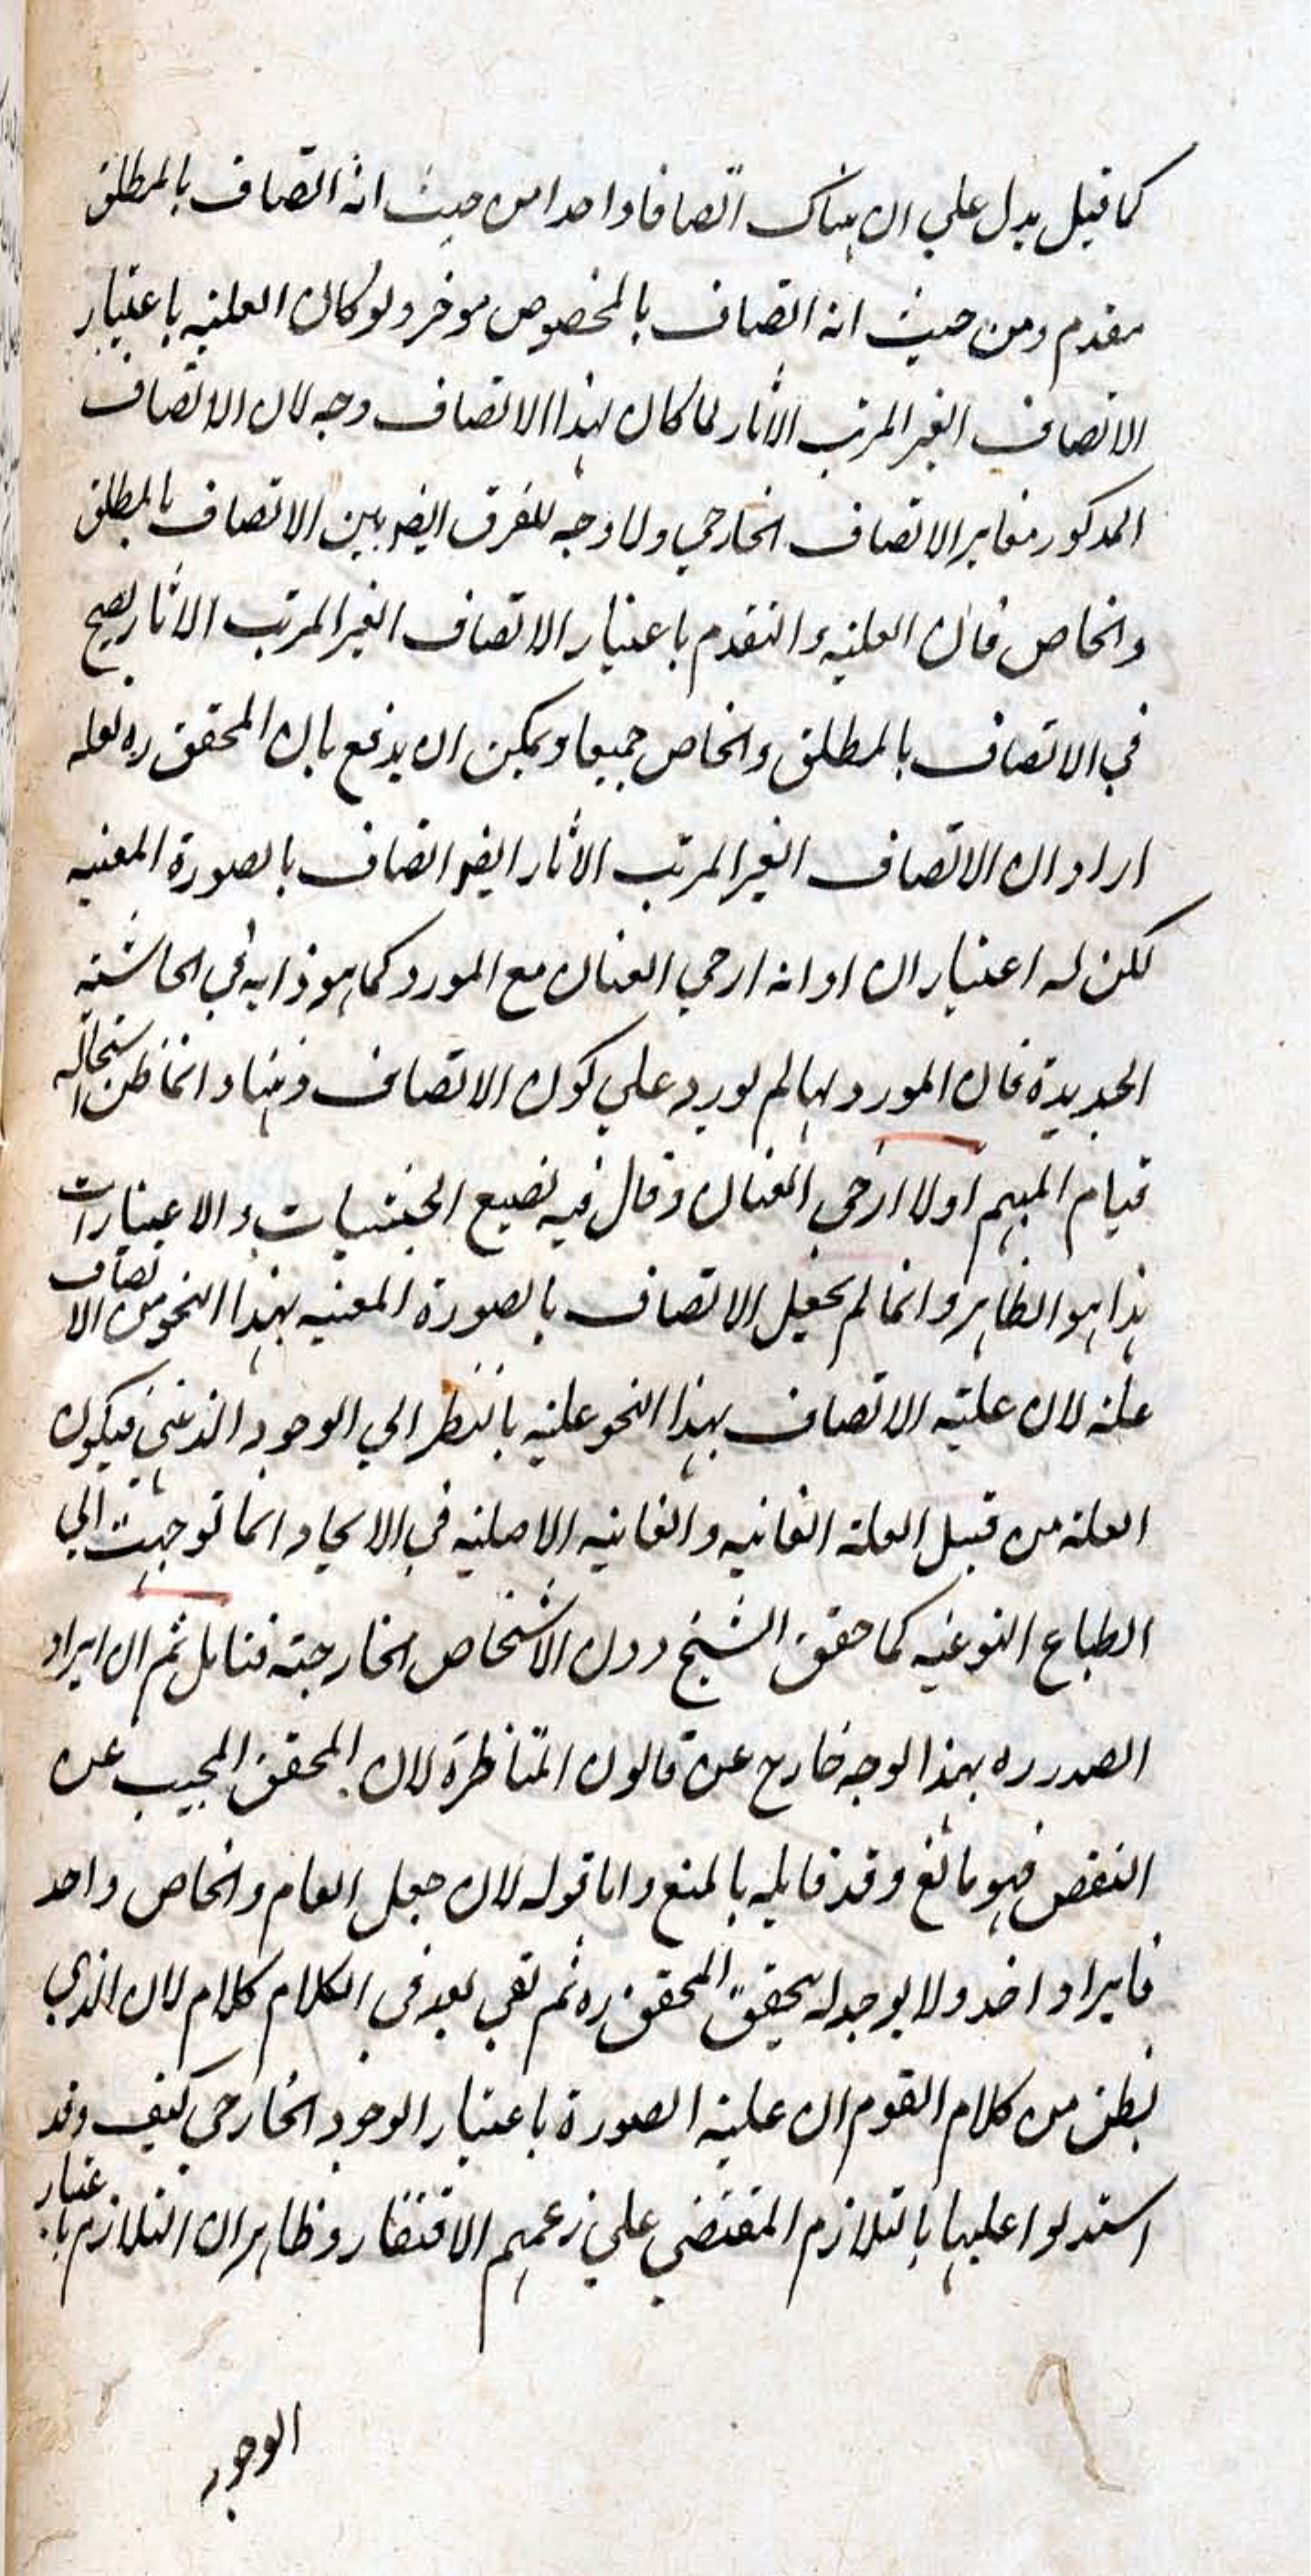 كما قيل يدل علي ان هناك اتصافا واحدا من حيث انه اتصاف بالمطلق
مقدم ومن حيث انه اتصاف بالمخصوص موخر ولو كان العلية باعتبار
الاتصاف الغير المرتب الاثار لما كان لهذا الاتصاف وجه لان الاتصاف
المذكور مغاير الاتصاف الخارجي ولا وجه للفرق ايضا بين الاتصاف بالمطلق
والخاص فان العلية والتقدم باعتبار الاتصاف الغير المرتب الاثار يصح
في الاتصاف بالمطلق والخاص جميعا ويمكن ان يدفع بان المحقق ره لعله
اراد ان الاتصاف الغير المرتب الاثار ايضا اتصاف بالصورة المعينه
لكن له اعتباران او انه ارخي العنان مع المورد كما هو ذابه في الحاشية
الجديدة فان المورد لها لم يورد علي كون الاتصاف ذهنيا وانما ظن استحالة
قيام المبهم اولا ارخي العنان وقال فيه نضيع الحيثيات والاعتبارات
هذا هو الظاهر وانما لم يجعل الاتصاف بالصورة المعينه بهذا النحو من الاتصاف
علة لان علية الاتصاف بهذا النحو علية بالنظر الي الوجود الذهني فيكون
العلة من قبيل العلة الغائيه والغائيه الاصلية في الايجاد انما توجهت الي
الطباع النوعيه كما حقق الشيخ دون الاشخاص الخارجية فتامل ثم ان ايراد
الصدر ره بهذا الوجه خارج عن قانون المناظرة لان المحقق المجيب عن
النقض فهو مانع وقد قابله بالمنع واما قوله لان جعل العام والخاص واحد
فايراد اخر ولا يوجد له تحقق المحقق ره ثم بقي بعد في الكلام كلام لان الذي
يظن من كلام القوم ان علية الصورة باعتبار الوجود الخارجي كيف وقد
استدلوا عليها بالتلازم المقتضي علي زعمهم الافتقار وظاهر ان التلازم باعتبار
الوجود